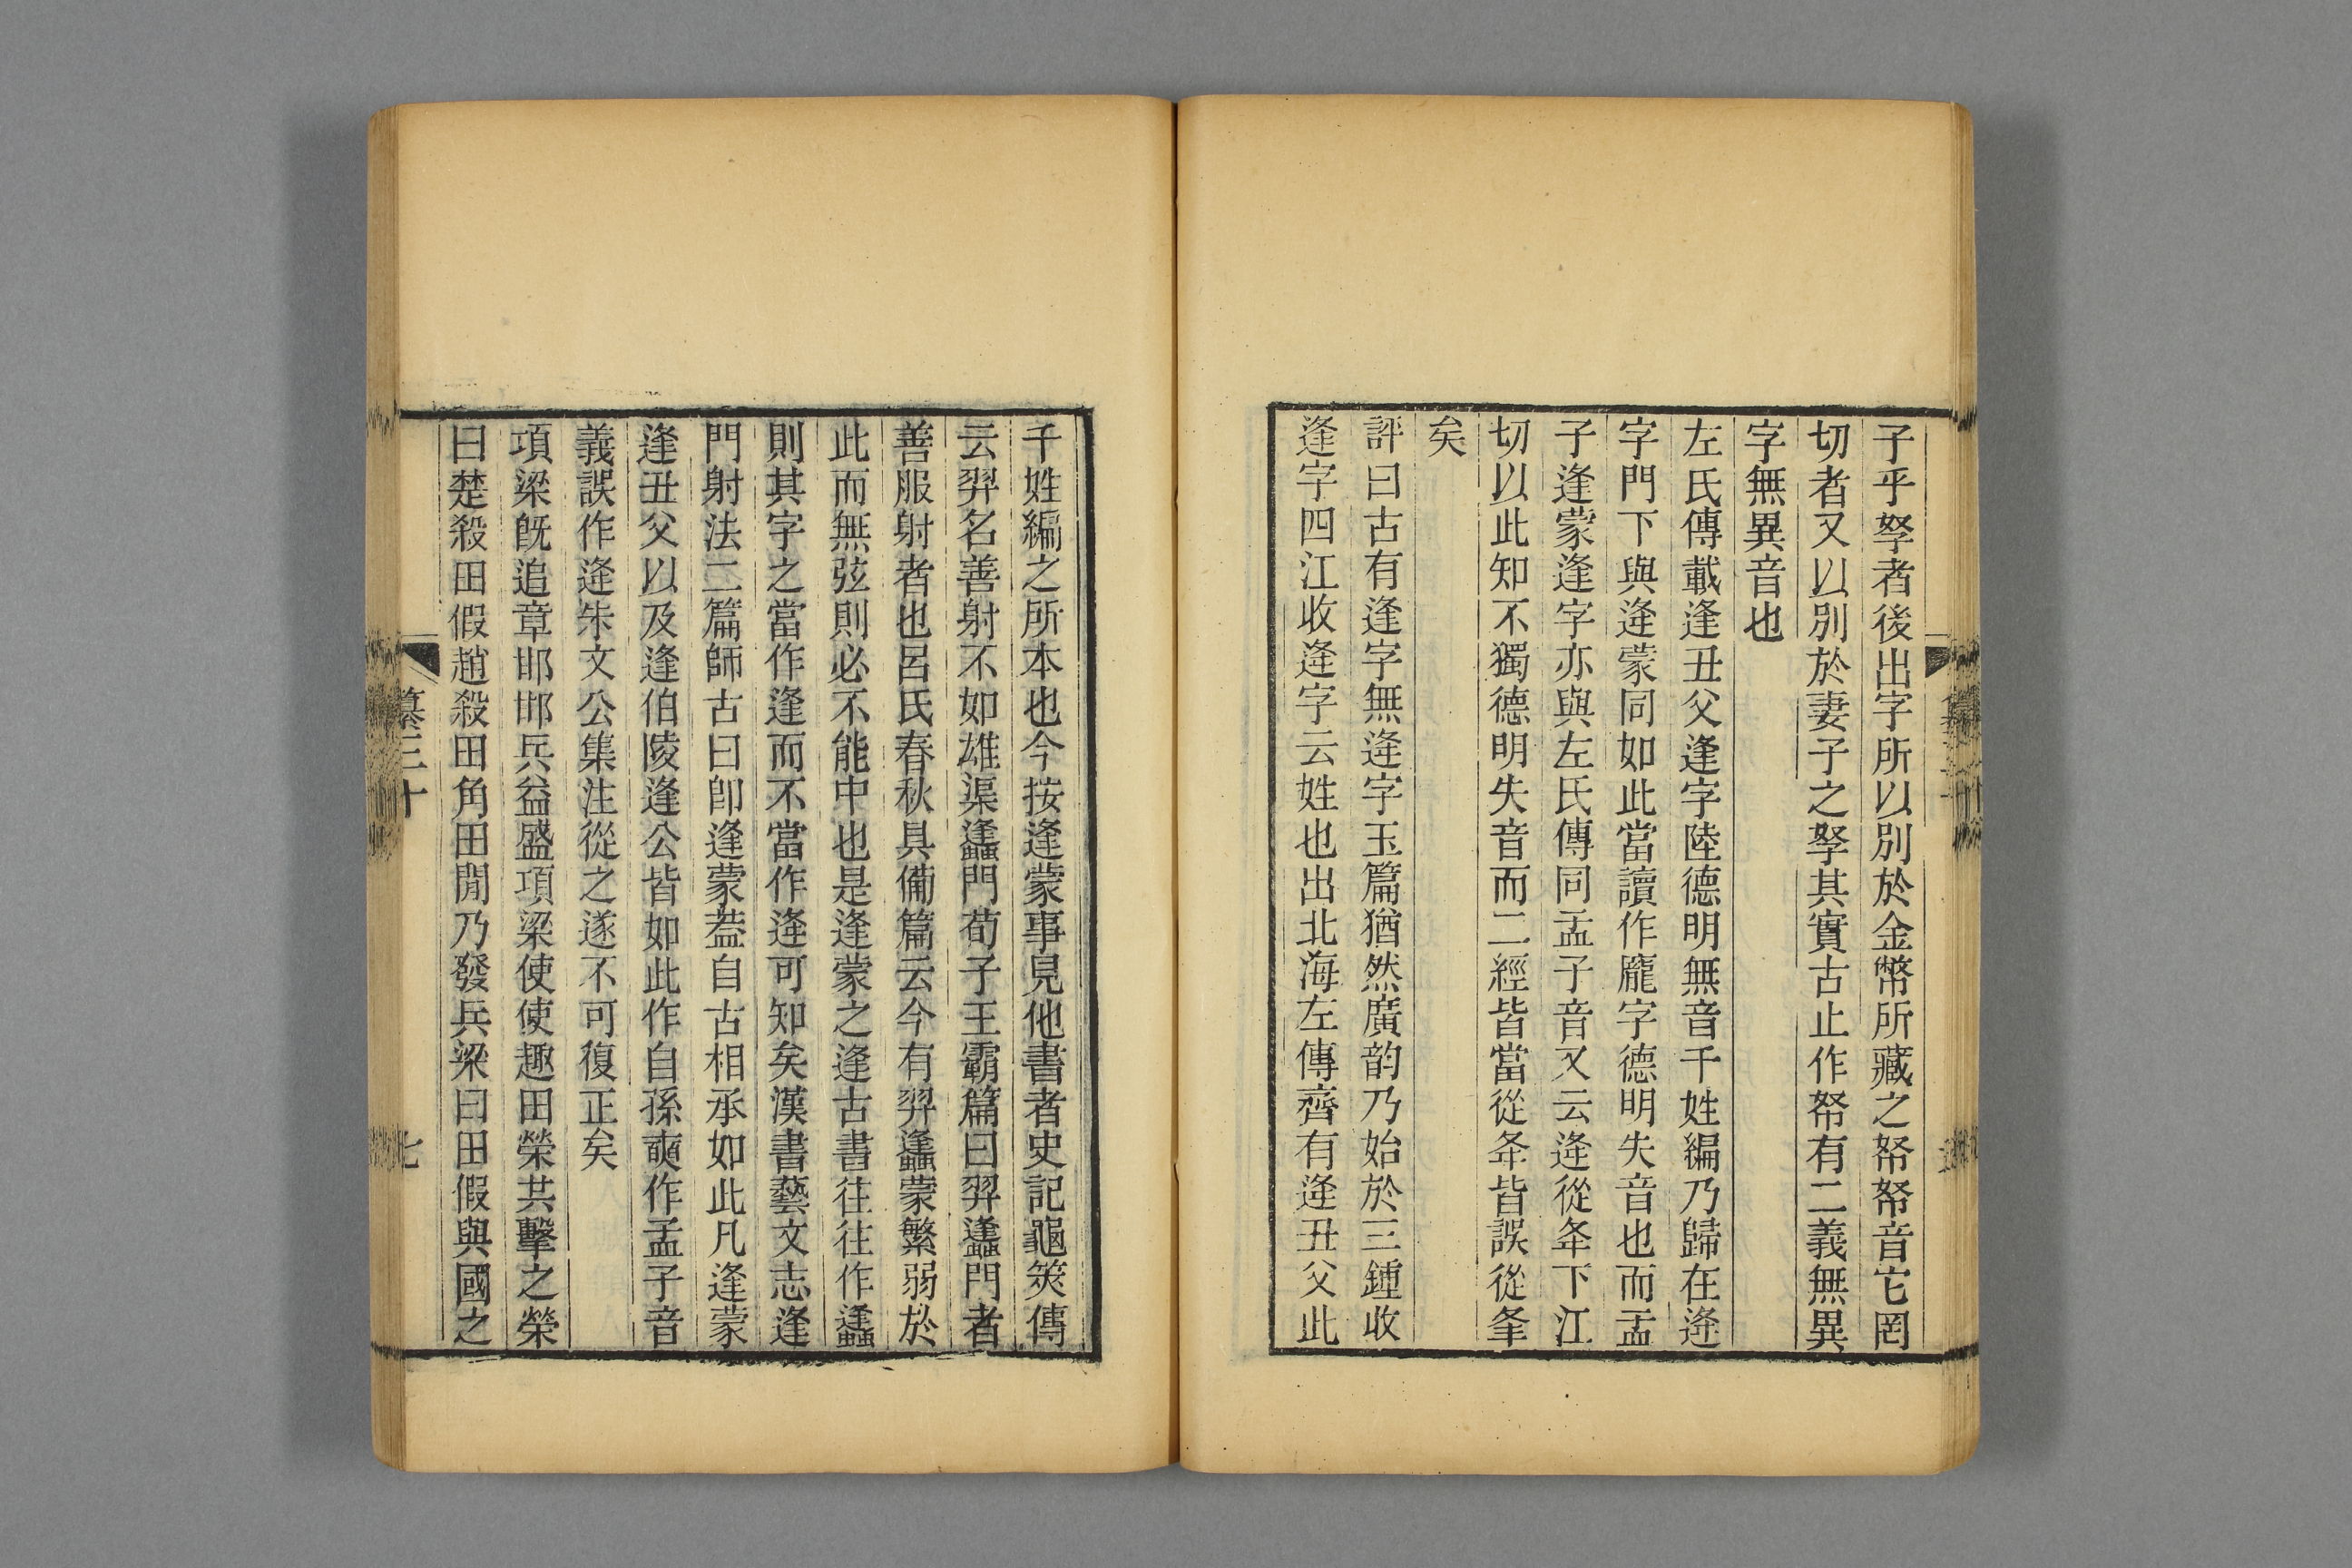 子乎孥者後出字所以別於金幣所藏之帑帑音它罔
切者又以別於妻子之孥其實古止作帑有二義無異
字無異音也
左氏傳載逢丑父逢字陸德明無音千姓編乃歸在逄
字門下與逄蒙同如此當讀作龐字德明失音也而孟
子逢蒙逢字亦與左氏傳同孟子音义云逄從夅下江
切以此知不獨德明失音而二經皆當從夅皆誤從夆
矣
評曰古有逢字無逄字玉篇猶然廣韵乃始於三鍾收
逢字四江收逄字云姓也出北海左傳齊有逄丑父此
千姓編之所本也今按逢蒙事見他書者史記龜筴傳
云羿名善射不如雄渠蠭門荀子王霸篇曰羿蠭門者
善服射者也呂氏春秋具備篇云今有羿蠭蒙繁弱於
此而無弦則必不能中也是逢蒙之逢古書往往作蠭
則其字之當作逢而不當作逄可知矣漢書藝文志逢
門射法二篇師古曰卽逢蒙葢自古相承如此凡逢蒙
逢丑父以及逢伯陵逢公皆如此作自孫奭作孟子音
義誤作逄朱文公集注從之遂不可復正矣
項梁旣追章邯邯兵益盛項梁使使趣田榮共擊之榮
曰楚殺田假趙殺田角田閒乃發兵梁曰田假與國之
纂三十
七